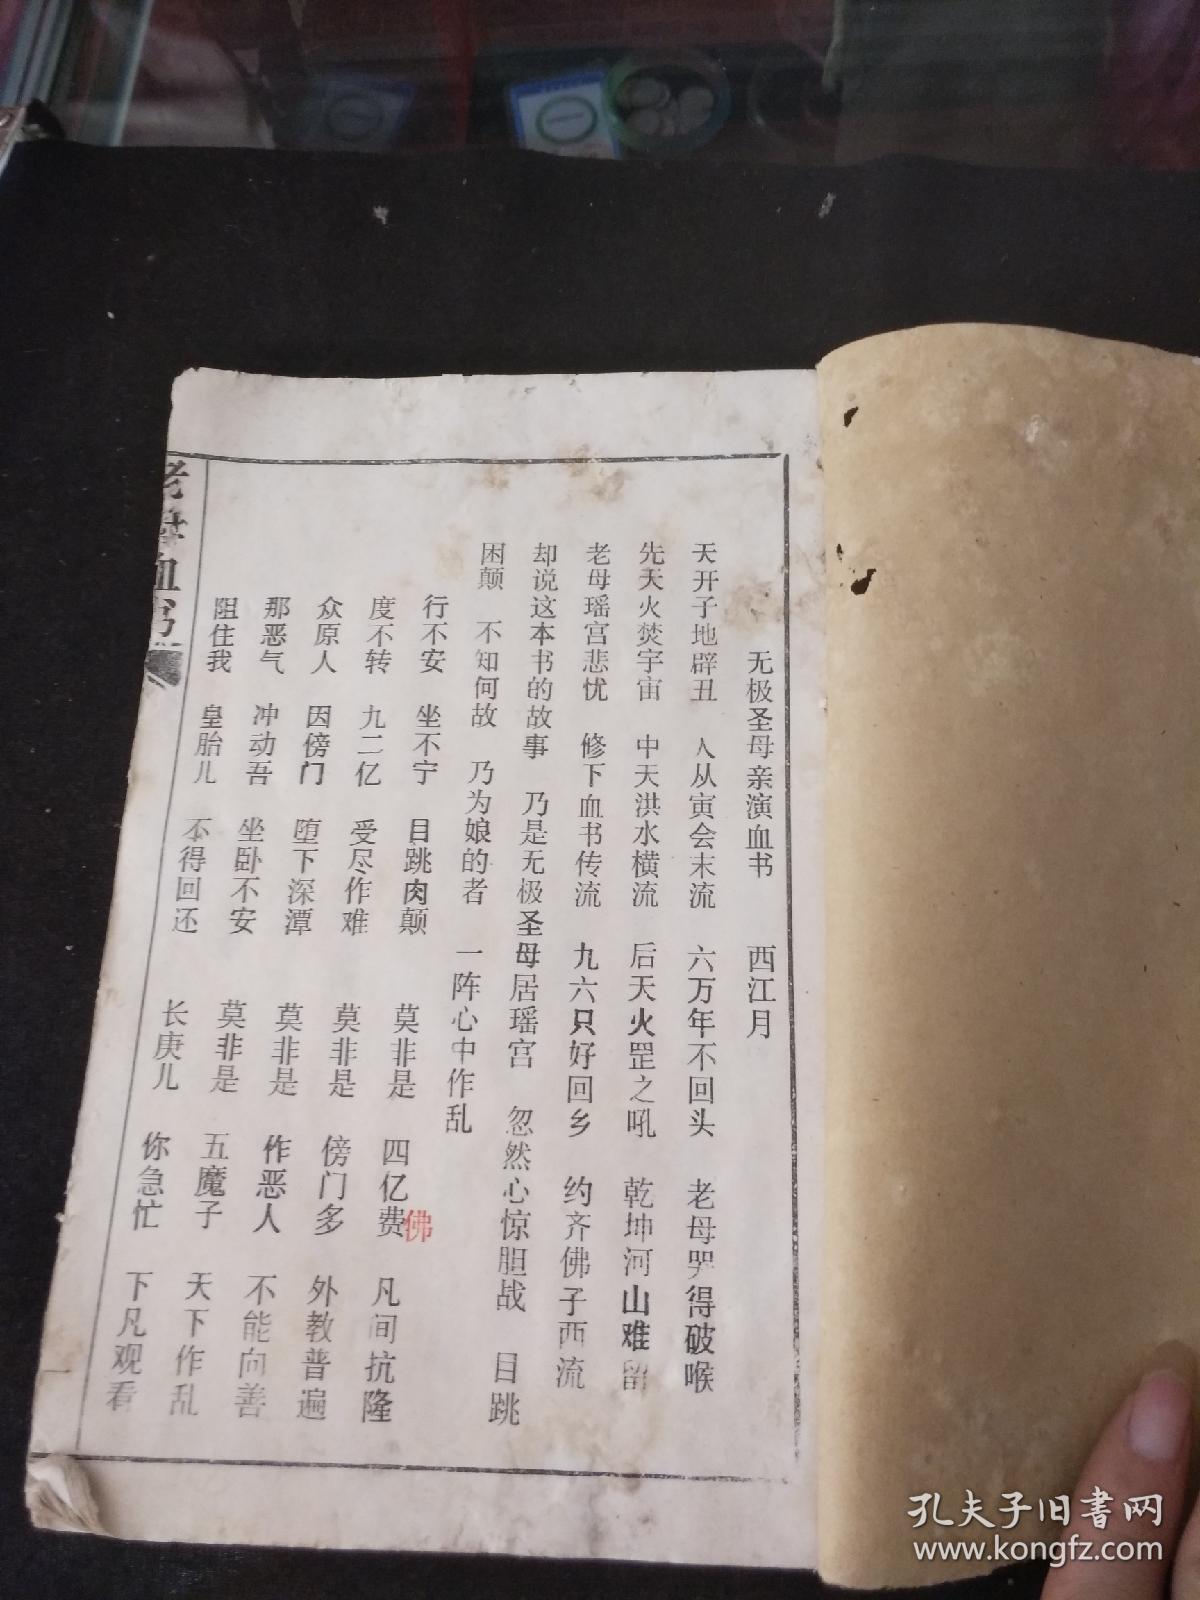 无极圣母亲演血书 西江月
天开子地辟丑 人从寅会末流 六万年不回头 老母哭得破喉
先天火焚宇宙 中天洪水横流 后天火罡之吼 乾坤河山难留
老母瑶宫悲忧 修下血书传流 九六只好回乡 约齐佛子西流
却说这本书的故事 乃是无极圣母居瑶宫 忽然心惊胆战 目跳
困颠 不知何故 乃为娘的者 一阵心中作乱
行不安 坐不宁 目跳肉颠 莫非是 四亿费 凡间抗隆
佛
度不转 九二亿 受尽作难 莫非是 傍门多 外教普遍
众原人 因傍门 堕下深潭 莫非是 作恶人 不能向善
那恶气 冲动吾 坐卧不安 莫非是 五魔子 天下作乱
阻住我 皇胎儿 不得回还 长庚儿 你急忙 下凡观看
老母血书
一
孔夫子旧书网
www.kongfz.com